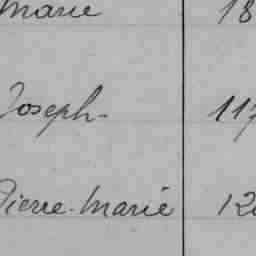 Marie 18
Joseph- 117
Pierre-Marie 12